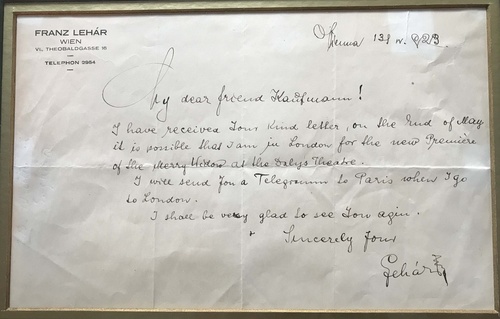 FRANZ LEHÁR
WIEN
VI., THEOBALDGASSE 16
TELEPHON 3964
Vienna 13
My dear friend Kaufmann!
I have received Your kind letter, on the End of May
it is possible that I am in London for the new Première
of the Merry Widow at the Dalys Theatre.
I will send You a Telegramm to Paris when I go
to London.
I shall be very glad to see You agin.
Sincerely Your
Lehár